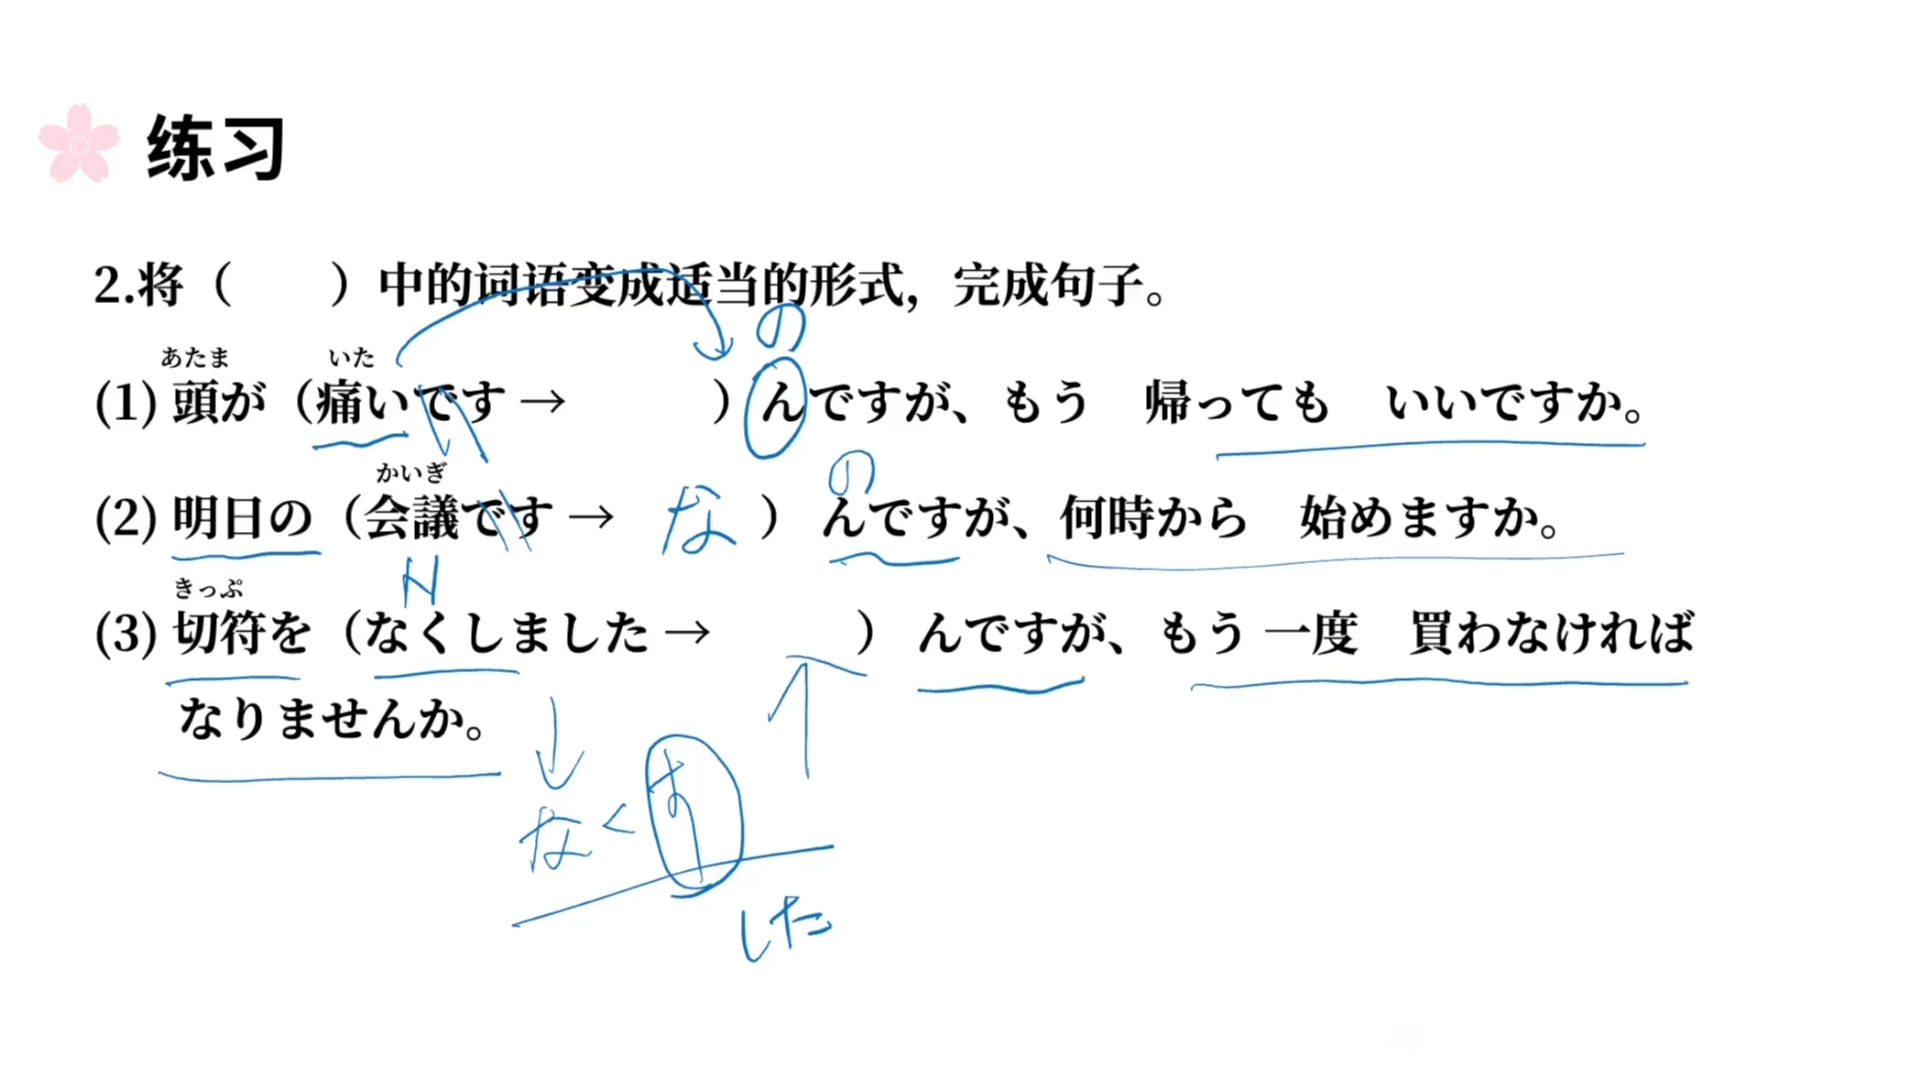 练习
2.将（　　）中的词语变成适当的形式，完成句子。
の
あたま　いた
(1) 頭が（痛いです→　　　）んですが、もう　帰っても　いいですか。
の
かいぎ
(2) 明日の（会議です→　な　）んですが、何時から　始めますか。
N
きっぷ
(3) 切符を（なくしました→　　　）んですが、もう一度　買わなければ
なりませんか。
なくす
した